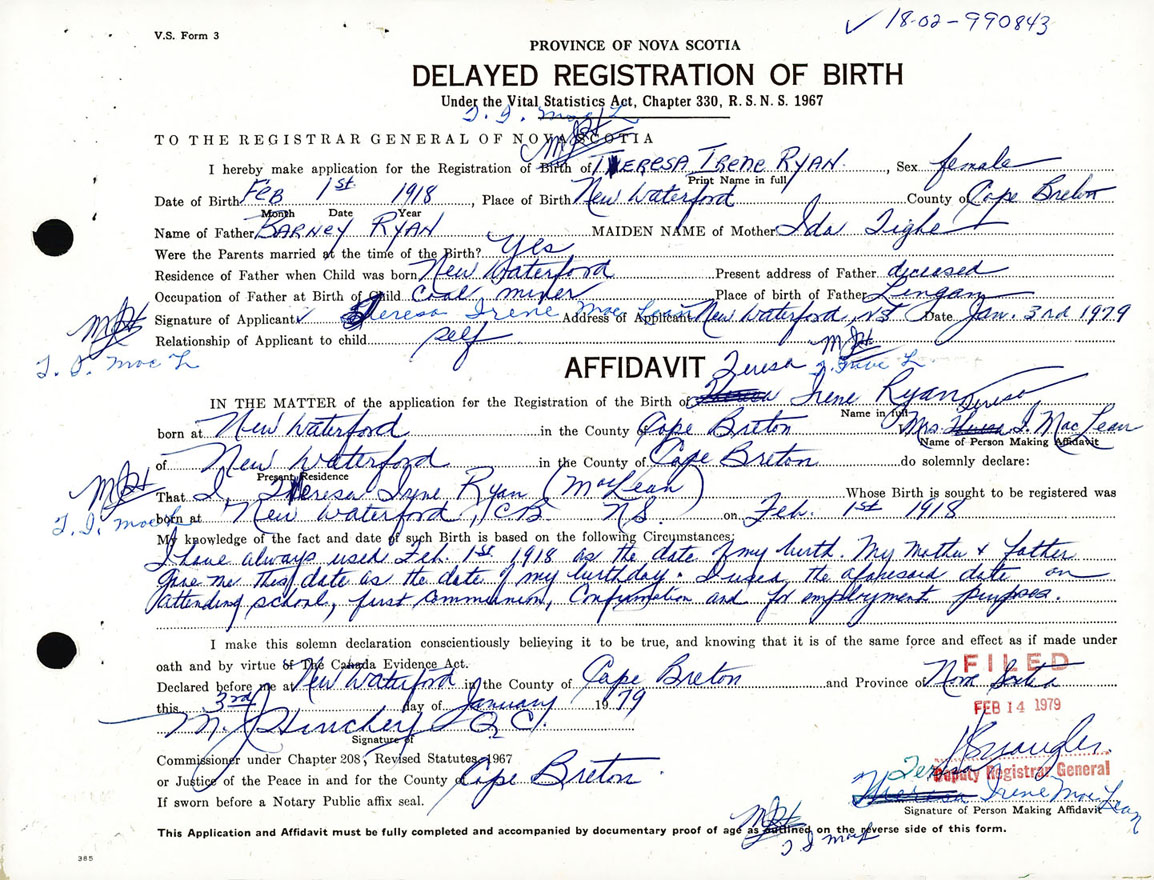 V.S. Form 3
✓ 18-02-990843
PROVINCE OF NOVA SCOTIA
DELAYED REGISTRATION OF BIRTH
Under the Vital Statistics Act, Chapter 330, R.S.N.S. 1967
T. I. Mac L
TO THE REGISTRAR GENERAL OF NOVA SCOTIA
I hereby make application for the Registration of Birth of THERESA IRENE RYAN, Sex female
Print Name in full
Date of Birth FEB 1st 1918, Place of Birth New Waterford County of Cape Breton
Month Date Year
Name of Father BARNEY RYAN MAIDEN NAME of Mother Ida Tighe
Were the Parents married at the time of the Birth? Yes
Residence of Father when Child was born New Waterford Present address of Father deceased
Occupation of Father at Birth of Child Coal miner Place of birth of Father Lingan
Signature of Applicant ✓ Teresa Irene Mac Lean Address of Applicant New Waterford, NS Date Jan. 3rd 1979
Relationship of Applicant to child self
T. I. Mac L
AFFIDAVIT
IN THE MATTER of the application for the Registration of the Birth of Teresa Irene Ryan
Name in full
born at New Waterford in the County of Cape Breton Mrs. Teresa I. MacLean
Name of Person Making Affidavit
of New Waterford in the County of Cape Breton do solemnly declare:
Present Residence
That I, Theresa Irene Ryan (MacLean) Whose Birth is sought to be registered was
T. I. Mac L
born at New Waterford, C.B. NS. on Feb. 1st 1918
My knowledge of the fact and date of such Birth is based on the following Circumstances:
I have always used Feb. 1st, 1918 as the date of my birth. My Mother & Father
gave me this date as the date of my birthday. I used the aforesaid date on
attending school, first Communion, Confirmation and for employment purposes.
I make this solemn declaration conscientiously believing it to be true, and knowing that it is of the same force and effect as if made under
oath and by virtue of The Canada Evidence Act.
FILED
Declared before me at New Waterford in the County of Cape Breton and Province of Nova Scotia
this 3rd day of January 1979
FEB 14 1979
M J Hinchey Q.C.
Signature of
Commissioner under Chapter 208, Revised Statutes 1967
or Justice of the Peace in and for the County of Cape Breton
Deputy Registrar General
If sworn before a Notary Public affix seal.
Teresa Irene Mac Lean
Signature of Person Making Affidavit
This Application and Affidavit must be fully completed and accompanied by documentary proof of age as outlined on the reverse side of this form.
T I MacL
385